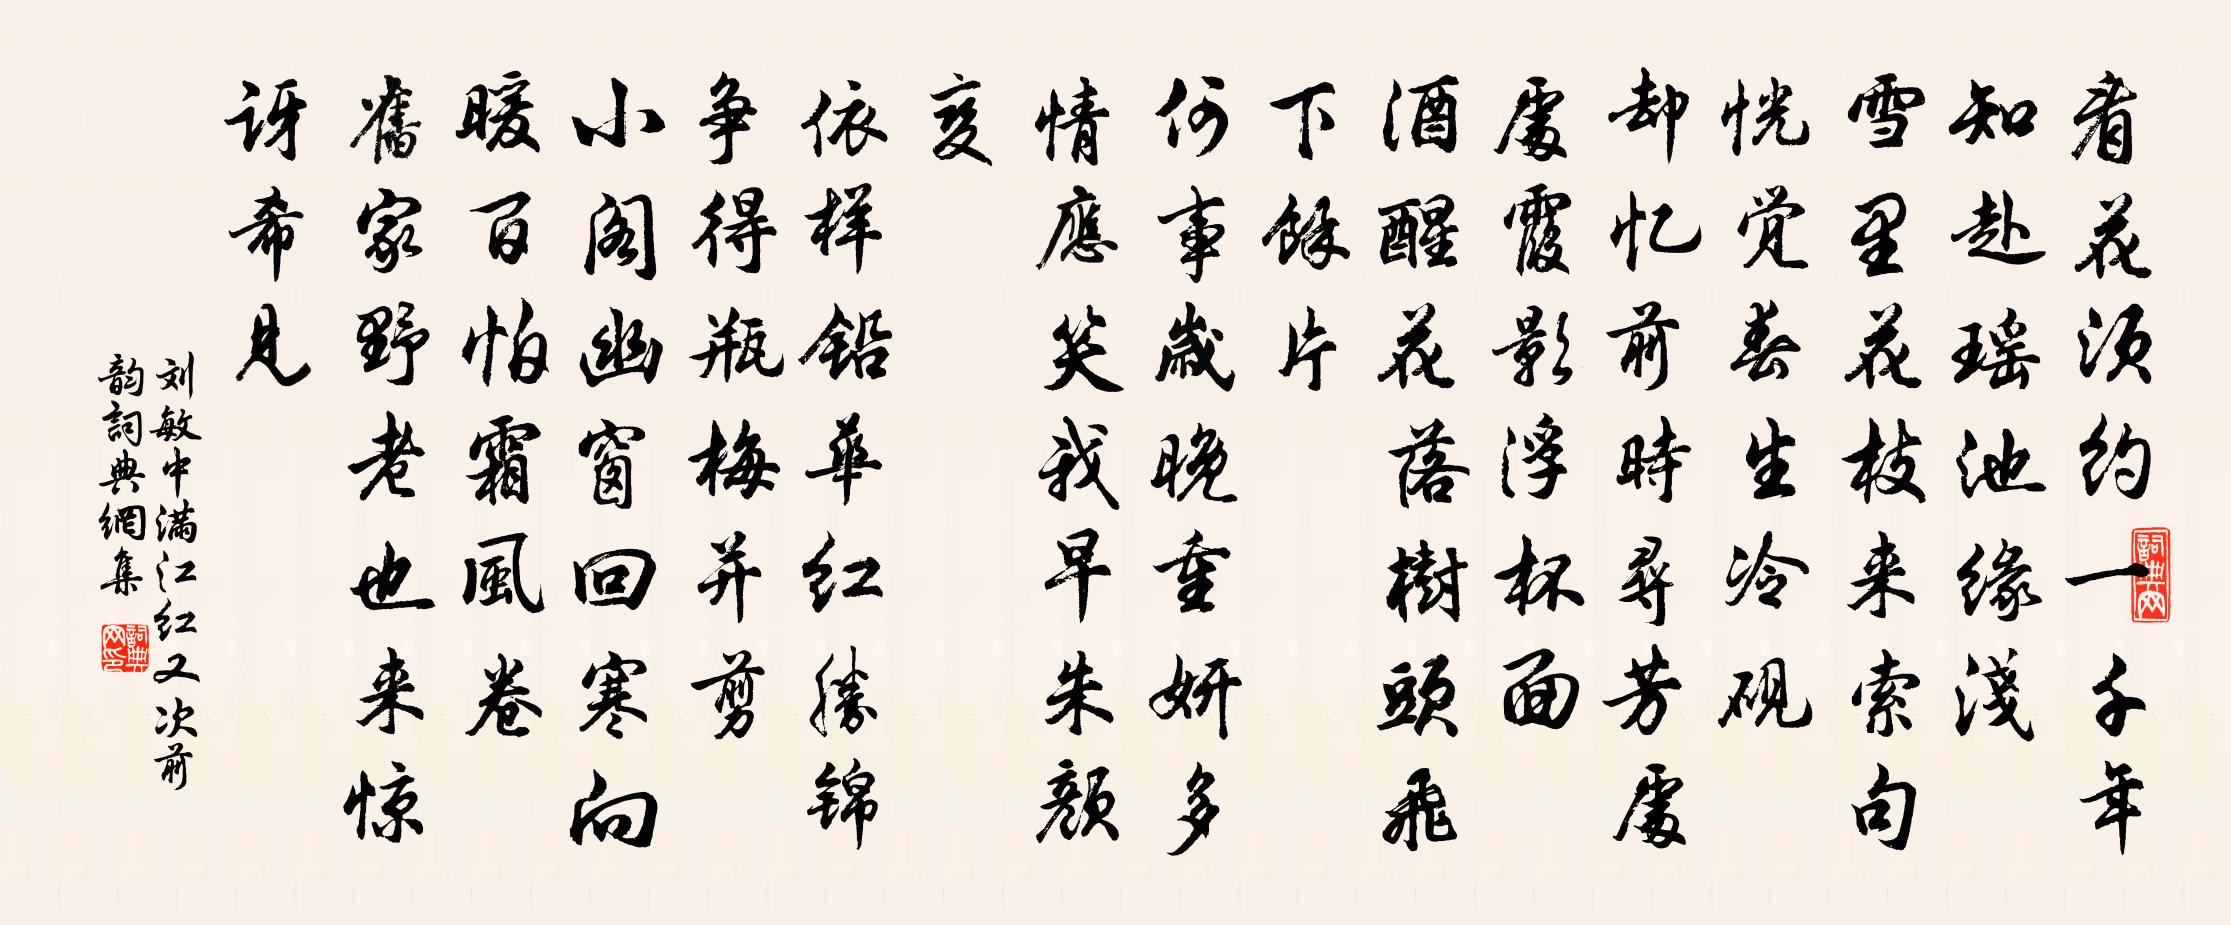 看花须約一千年
知赴瑶池缘淺
雪里花枝来索句
恍觉春生冷砚
却忆前時尋芳處
處霞影浮杯面
酒醒花落樹頭飛
下餘片
何事歲晚重妍多
情應笑我早朱顔
变
依样铅華红勝锦
争得瓶梅并剪
小阁幽窗回寒向
暖百怕霜風卷
舊家野老也来惊
讶希見
刘敏中满江红又次前
韵詞典網集